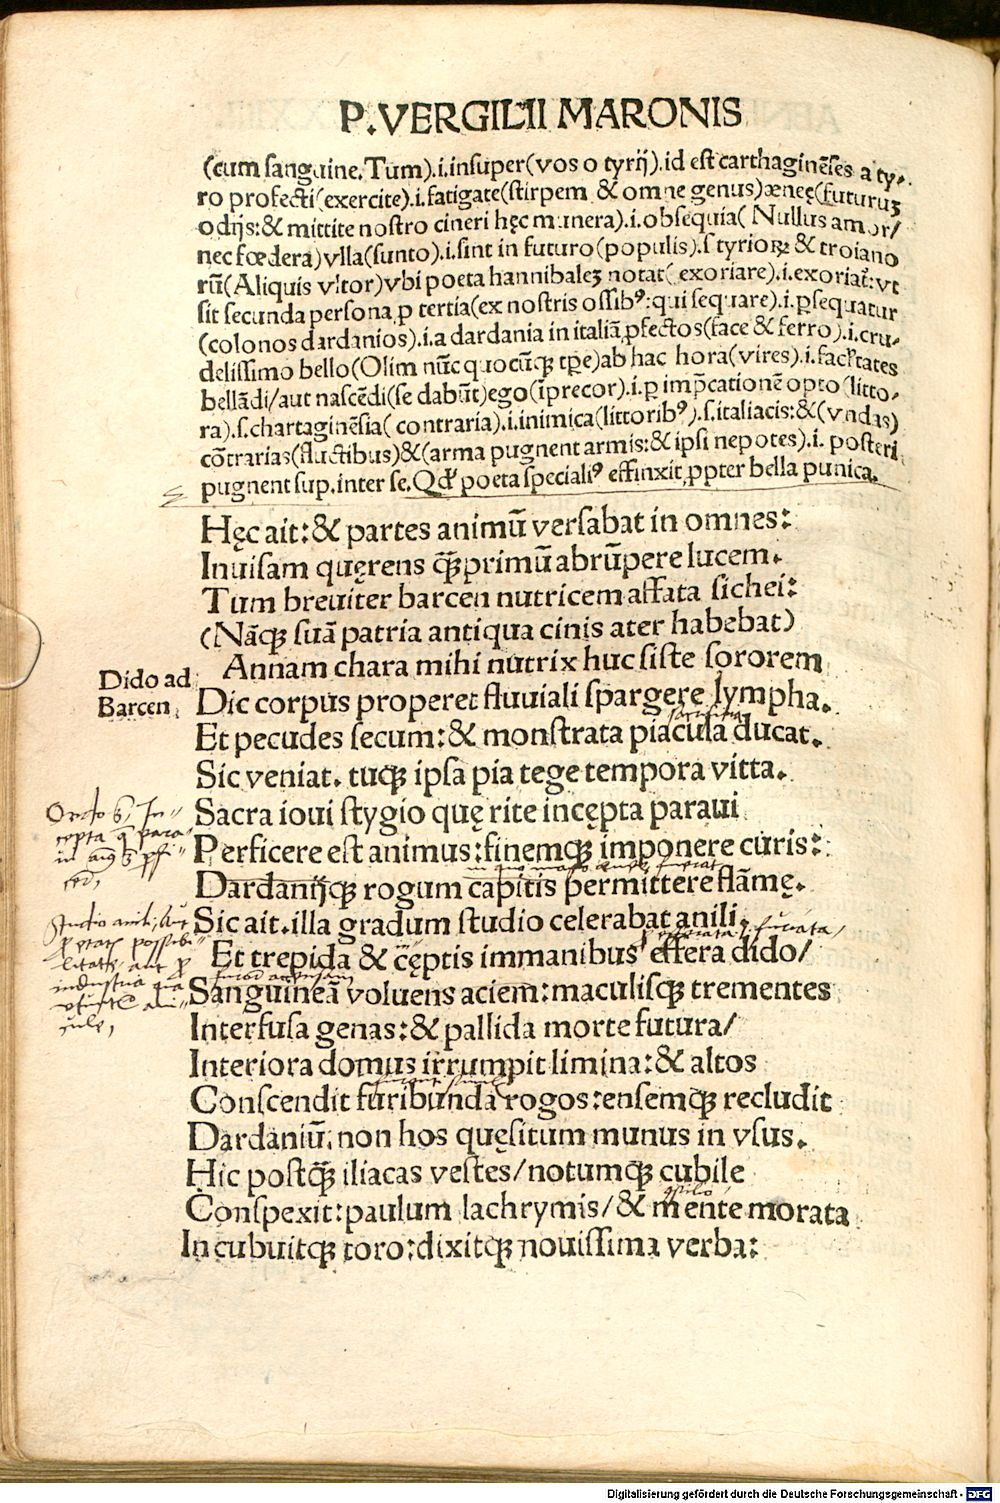 P. VERGILII MARONIS
(cum sanguine. Tum).i.insuper(vos o tyrij).id est carthaginēses a ty-
ro profecti(exercite).i.fatigate(stirpem & omne genus)æneę(futuruʒ
odijs:& mittite nostro cineri hęc munera).i.obsequia( Nullus amor/
nec fœdera)vlla(sunto).i.sint in futuro(populis).s tyrioꝝ & troiano
rū(Aliquis vltor)vbi poeta hannibaleʒ notat( exoriare).i.exoriat̄:vt
sit secunda persona ꝓ tertia(ex nostris ossibꝰ:qui sequare).i.ꝑsequatur
(colonos dardanios).i.a dardania in italiā ꝓfectos(face & ferro).i.cru-
delissimo bello(Olim nūc quocūqꝫ tꝑe)ab hac hora(vires).i.facl̄tates
bellādi/aut nascēdi(se dabūt)ego(īprecor).i.ꝑ imp̄cationē opto (litto-
ra).s.chartaginēsia( contraria).i.inimica(littoribꝰ).s.italiacis:&(vndas)
cōtrarias(fluctibus)&(arma pugnent armis:& ipsi nepotes).i. posteri
pugnent sup.inter se.Qđ poeta specialiꝰ effinxit ꝓpter bella punica.
Hęc ait:& partes animū versabat in omnes:
Inuisam quęrens qꝫ̄primū abrūpere lucem.
Tum breuiter barcen nutricem affata sichei:
(Nāqꝫ suā patria antiqua cinis ater habebat)
Annam chara mihi nutrix huc siste sororem
Dido ad
Barcen.
Dic corpus properet fluuiali spargere lympha.
Et pecudes secum:& monstrata piacula ducat.
Sic veniat. tuqꝫ ipsa pia tege tempora vitta.
Sacra ioui stygio quę rite incępta paraui
Perficere est animus:finemqꝫ imponere curis:
Dardanijqꝫ rogum capitis permittere flāmę.
Sic ait.illa gradum studio celerabat anili.
Et trepida & cęptis immanibus effera dido/
Sanguineā voluens aciem:maculisqꝫ trementes
Interfusa genas:& pallida morte futura/
Interiora domus irrumpit limina:& altos
Conscendit furibunda rogos:ensemqꝫ recludit
Dardaniū.non hos quęsitum munus in vsus.
Hic postqꝫ̄ iliacas vestes/notumqꝫ cubile
Conspexit:paulum lachrymis/& mente morata
Incubuitqꝫ toro:dixitqꝫ nouissima verba:
Digitalisierung gefördert durch die Deutsche Forschungsgemeinschaft - DFG